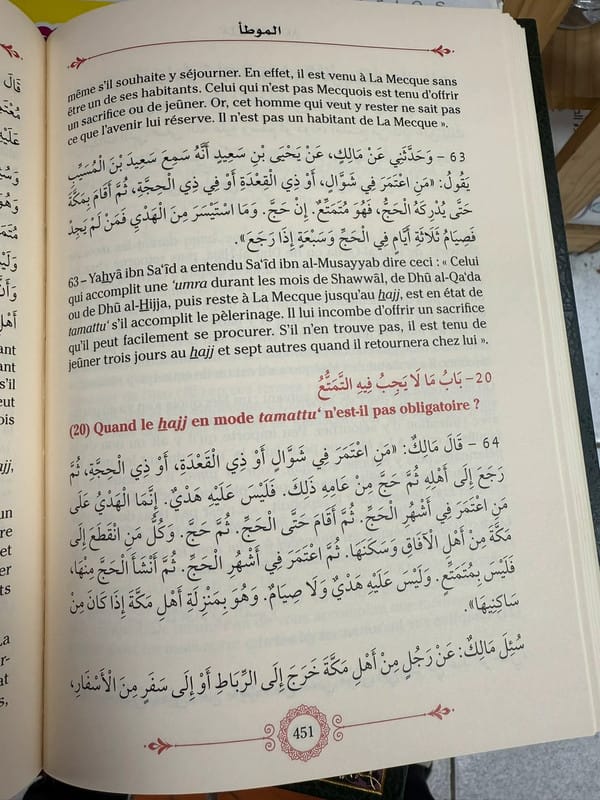 الموطأ
même s'il souhaite y séjourner. En effet, il est venu à La Mecque sans
être un de ses habitants. Celui qui n'est pas Mecquois est tenu d'offrir
un sacrifice ou de jeûner. Or, cet homme qui veut y rester ne sait pas
ce que l'avenir lui réserve. Il n'est pas un habitant de La Mecque ».
63 – وَحَدَّثَنِي عَنْ مَالِكٍ، عَنْ يَحْيَى بْنِ سَعِيدٍ أَنَّهُ سَمِعَ سَعِيدَ بْنَ الْمُسَيِّبِ
يَقُولُ: «مَنِ اعْتَمَرَ فِي شَوَّالٍ، أَوْ ذِي الْقِعْدَةِ أَوْ فِي ذِي الْحِجَّةِ، ثُمَّ أَقَامَ بِمَكَّةَ
حَتَّى يُدْرِكَهُ الْحَجُّ، فَهُوَ مُتَمَتِّعٌ. إِنْ حَجَّ. وَمَا اسْتَيْسَرَ مِنَ الْهَدْيِ فَمَنْ لَمْ يَجِدْ
فَصِيَامُ ثَلَاثَةِ أَيَّامٍ فِي الْحَجِّ وَسَبْعَةٍ إِذَا رَجَعَ».
63 – Yahyâ ibn Sa‘îd a entendu Sa‘îd ibn al-Musayyab dire ceci : « Celui
qui accomplit une ‘umra durant les mois de Shawwâl, de Dhû al-Qa‘da
ou de Dhû al-Hijja, puis reste à La Mecque jusqu'au hajj, est en état de
tamattu‘ s'il accomplit le pèlerinage. Il lui incombe d'offrir un sacrifice
qu'il peut facilement se procurer. S'il n'en trouve pas, il est tenu de
jeûner trois jours au hajj et sept autres quand il retournera chez lui ».
20- بَابُ مَا لَا يَجِبُ فِيهِ التَّمَتُّعُ
(20) Quand le hajj en mode tamattu‘ n'est-il pas obligatoire ?
64 – قَالَ مَالِكٌ: «مَنِ اعْتَمَرَ فِي شَوَّالٍ أَوْ ذِي الْقَعْدَةِ، أَوْ ذِي الْحِجَّةِ، ثُمَّ
رَجَعَ إِلَى أَهْلِهِ ثُمَّ حَجَّ مِنْ عَامِهِ ذَلِكَ. فَلَيْسَ عَلَيْهِ هَدْيٌ. إِنَّمَا الْهَدْيُ عَلَى
مَنِ اعْتَمَرَ فِي أَشْهُرِ الْحَجِّ. ثُمَّ أَقَامَ حَتَّى الْحَجِّ. ثُمَّ حَجَّ. وَكُلُّ مَنِ انْقَطَعَ إِلَى
مَكَّةَ مِنْ أَهْلِ الْآفَاقِ وَسَكَنَهَا. ثُمَّ اعْتَمَرَ فِي أَشْهُرِ الْحَجِّ. ثُمَّ أَنْشَأَ الْحَجَّ مِنْهَا،
فَلَيْسَ بِمُتَمَتِّعٍ. وَلَيْسَ عَلَيْهِ هَدْيٌ وَلَا صِيَامٌ. وَهُوَ بِمَنْزِلَةِ أَهْلِ مَكَّةَ إِذَا كَانَ مِنْ
سَاكِنِيهَا».
سُئِلَ مَالِكٌ: عَنْ رَجُلٍ مِنْ أَهْلِ مَكَّةَ خَرَجَ إِلَى الرِّبَاطِ أَوْ إِلَى سَفَرٍ مِنَ الْأَسْفَارِ،
451